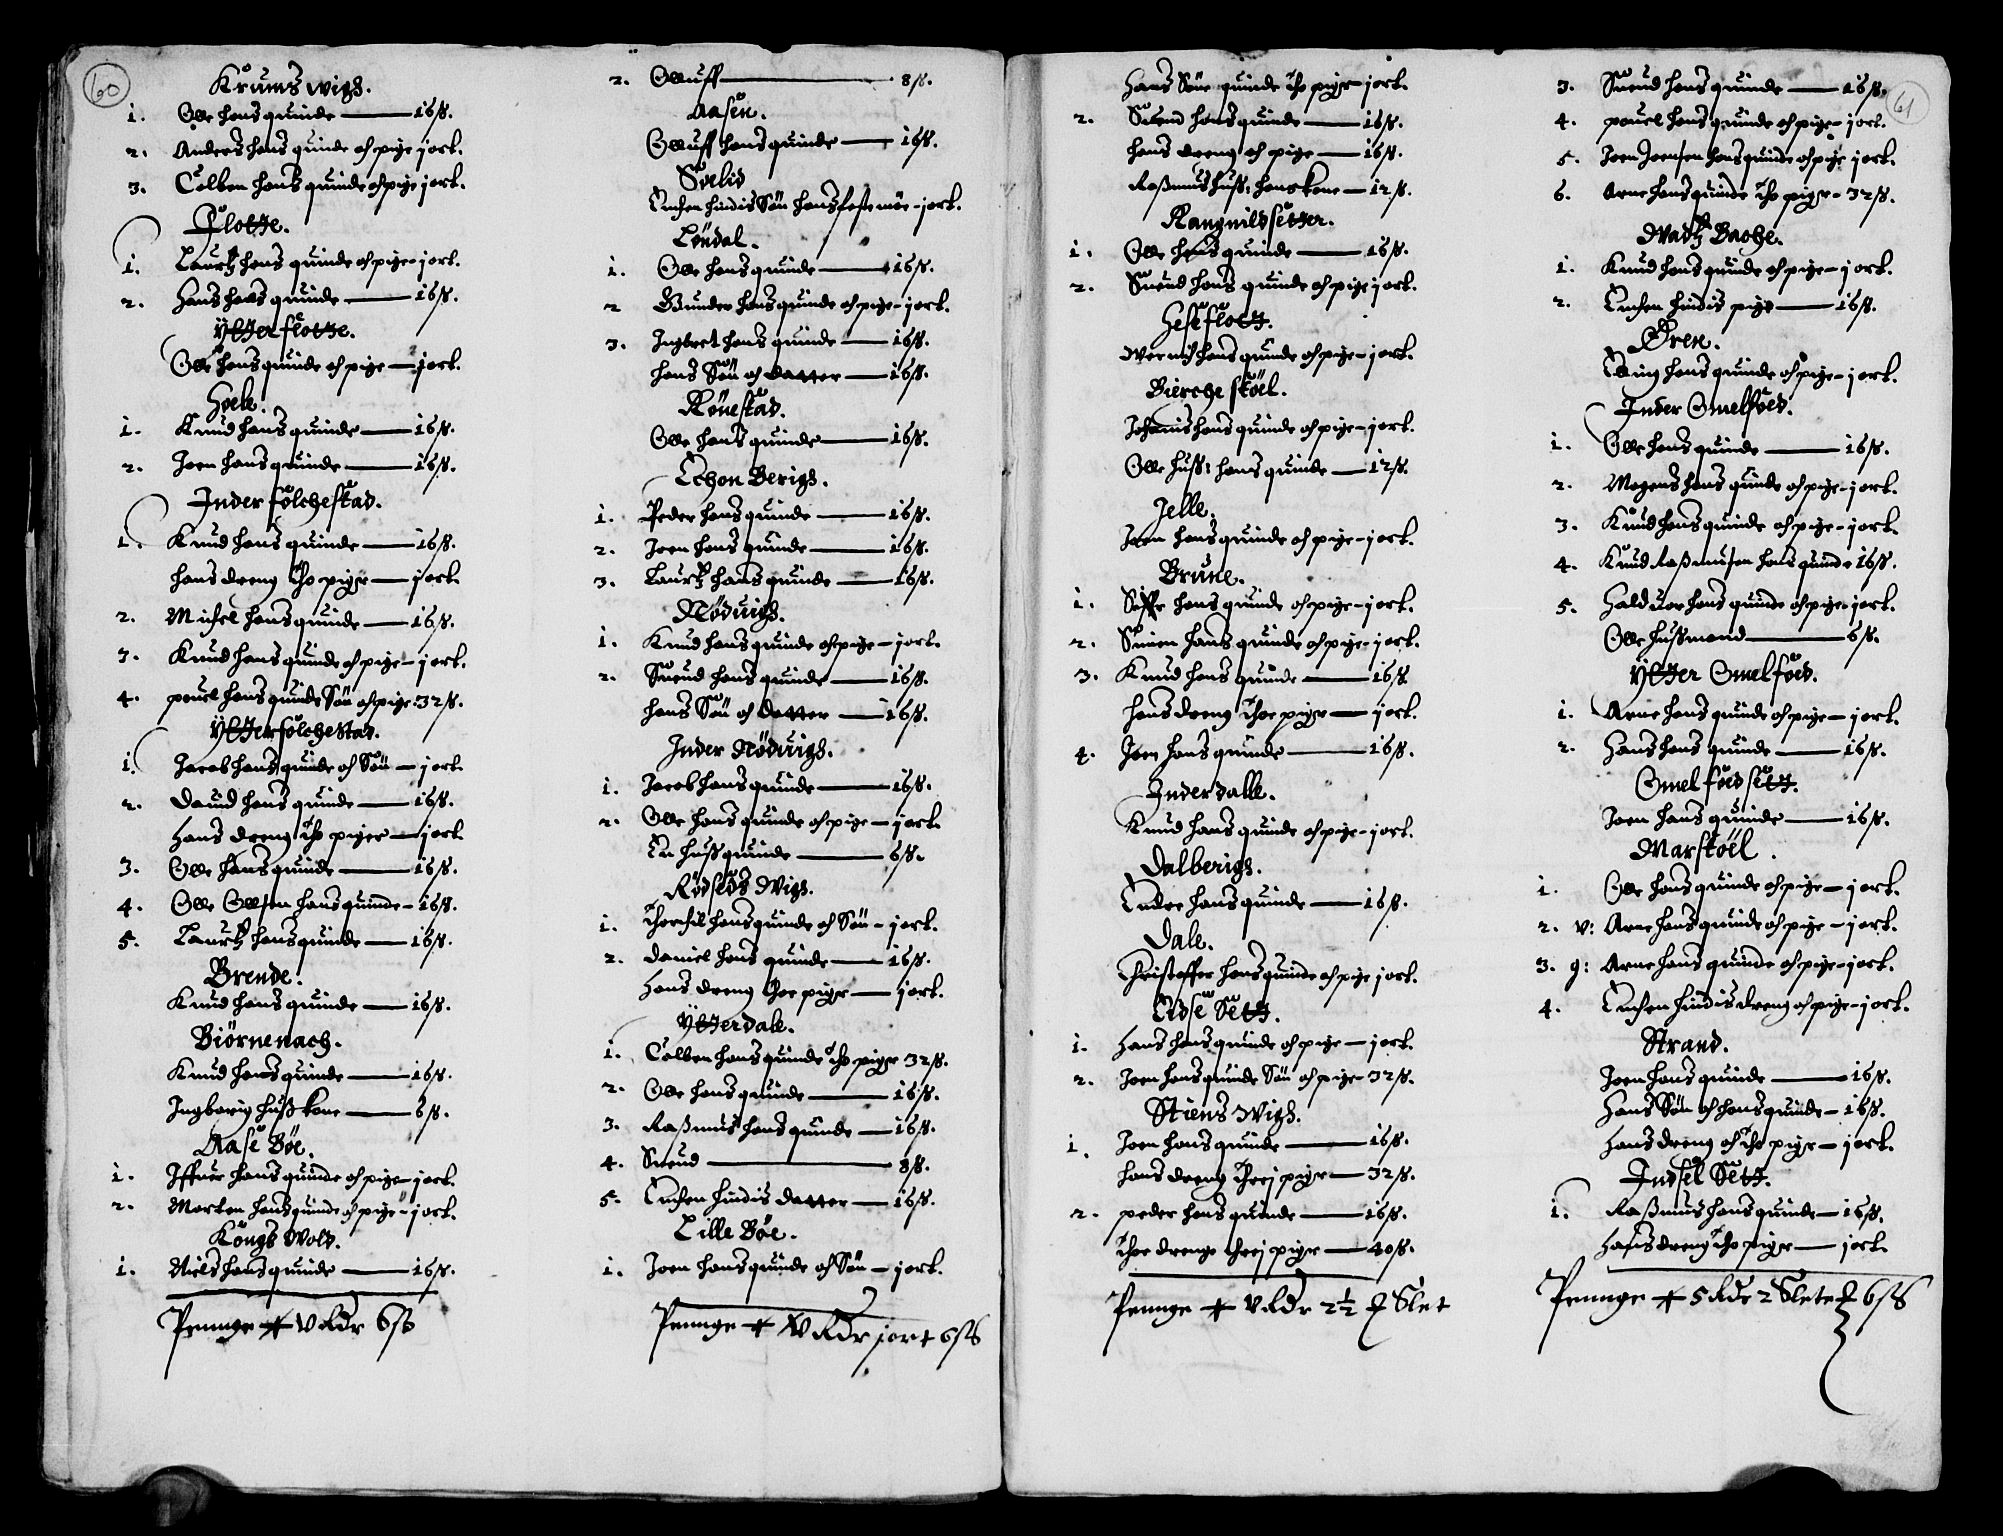 60
Krumswigh.
1. Olle hans quinde — 16 ß.
2. Anders hans quinde och pige jort.
3. Colben hans quinde och pige jort.
Flotte.
1. Lauritz hans quinde och pige - jort.
2. Hans hans quinde — 16 ß.
Ytterflotte.
Olle hans quinde och pige — jort.
Hole.
1. Knud hans quinde — 16 ß.
2. Joen hans quinde — 16 ß.
Inder folchestad.
1. Knud hans quinde — 16 ß.
hans dreng tho piger — jort.
2. Michel hans quinde — 16 ß.
3. Knud hans quinde och pige - jort.
4. Pouel hans quinde Søn och pige: 32 ß.
Ytterfolchestad.
1. Jacob hans quinde och Søn — jort.
2. Dauid hans quinde — 16 ß.
Hans dreng tho piger — jort.
3. Olle hans quinde — 16 ß.
4. Olle Ollsen hans quinde - 16 ß.
5. Lauritz hans quinde — 16 ß.
Brende.
Knud hans quinde — 16 ß.
Biørnenach.
Knud hans quinde — 16 ß.
Ingborig huß kone — 6 ß.
Aase Bøe.
1. Iffuer hans quinde och pige - jort.
2. Morten hans quinde och pige - jort.
Kongs Wold.
1. Niels hans quinde — 16 ß.
Penninge # V Rdr 6 ß
2. Oluff — 8 ß.
Aasen.
Oluff hans quinde — 16 ß.
Suelid
Enchen hindis Søn hans feste møe - jort.
Løndal.
1. Olle hans quinde — 16 ß.
2 Gunder hans quinde och pige - jort.
3. Ingbret hans quinde — 16 ß.
hans Søn och datter — 16 ß.
Rønestad.
Olle hans quinde — 16 ß.
Echon Berigh.
1. Peder hans quinde — 16 ß.
2. Joen hans quinde — 16 ß.
3. Lauritz hans quinde — 16 ß.
Nøduigh.
1. Knud hans quinde och pige — jort.
2. Suend hans quinde — 16 ß.
hans Søn och datter — 16 ß.
Inder Nøduigh.
1. Jacob hans quinde — 16 ß.
2. Olle hans quinde och pige — jort.
En huß quinde — 6 ß.
Rødseds Wigh.
1. Thorchil hans quinde och Søn - jort.
2. Daniel hans quinde — 16 ß.
Hans dreng thoe piger — jort.
Ytterdale.
1. Colben hans quinde tho piger 32 ß.
2. Olle hans quinde — 16 ß.
3. Raßmus hans quinde — 16 ß.
4. Suend — 8 ß.
5. Enchen hindis datter — 16 ß.
Lille Bøe.
1. Joen hans quinde och Søn — jort.
Penninge # XV Rdr jort 6 ß
Hans Søns quinde tho piger - jort.
2. Suend hans quinde — 16 ß.
hans dreng och pige — 16 ß.
Raßmus huß: hans kone — 12 ß.
Rangnildsetter.
1. Olle hans quinde — 16 ß.
2. Suend hans quinde och pige jort.
Geseflott.
hans quinde och pige - jort.
Bierche støel.
Johanis hans quinde och pige - jort.
Olle huß: hans quinde — 12 ß.
Jelle.
Joen hans quinde och pige - jort.
Brune.
1. Siffr hans quinde och pige - jort.
2. Suien hans quinde och pige - jort.
3. Knud hans quinde — 16 ß
hans dreng thoe piger — jort.
4. Joen hans quinde — 16 ß.
Inderdalle.
Knud hans quinde och pige - jort.
Dalberigh.
Endre hans quinde — 16 ß.
Dale.
Christoffer hans quinde och pige jort.
Edse Sett.
1. Hans hans quinde och pige — jort.
2. Joen hans quinde Søn och pige 32 ß.
Stiens Wigh.
1. Joen hans quinde — 16 ß.
hans dreng threj piger — 32 ß.
2. peder hans quinde — 16 ß.
Thoe drenge threj piger — 40 ß.
Penninge # V Rdr 2½ # Slet
61
3. Suend hans quinde — 16 ß.
4. pouel hans quinde och pige - jort.
5. Joen Joensen hans quinde och pige jort.
6. Arne hans quinde tho piger - 32 ß.
Watz Bache.
1. Knud hans quinde och pige - jort.
2. Enchen hindis pige — 16 ß.
Øren.
hans quinde och pige - jort.
Inder Omelfoed.
1. Olle hans quinde — 16 ß.
2. Mogens hans quinde och pige - jort.
3. Knud hans quinde och pige - jort.
4. Knud Raßmusen hans quinde 16 ß.
5. Halduor hans quinde och pige - jort.
Olle hußmand — 6 ß.
Ytter Omelfoed.
1. Arne hans quinde och pige — jort.
2. Hans hans quinde — 16 ß.
Omelfoedsett.
Joen hans quinde — 16 ß.
Marstøel.
1. Olle hans quinde och pige — jort.
2. v: Arne hans quinde och pige — jort.
3. g: Arne hans quinde och pige - jort.
4. Enchen hindis dreng och pige - jort.
Strand.
Joen hans quinde — 16 ß.
Hans Søn och hans quinde — 16 ß.
hans dreng och tho piger — jort.
Indsel Sett.
1. Raßmus hans quinde — 16 ß.
Hans dreng tho piger — jort.
Penninge # 5 Rdr 2 Slete # 6 ß